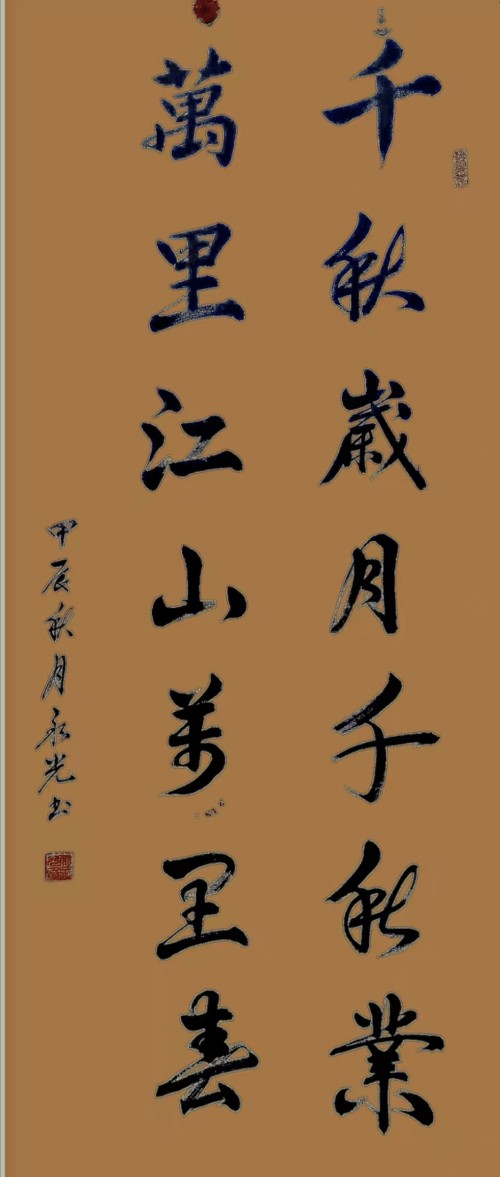 千秋歲月千秋業
萬里江山萬里春
甲辰秋月永光书